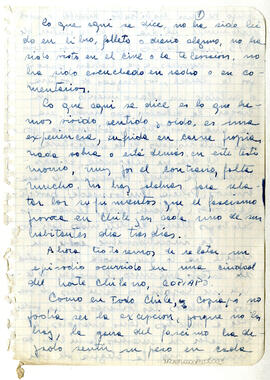 1
Lo que aquí se dice, no ha sido leí
do en libro, folleto o diario alguno, no ha
sido visto en el cine o la televisión, no
ha sido escuchado en radio o en co-
mentarios.
Lo que aquí se dice es lo que he-
mos vivido, sentido, oído, es una
experiencia, sufrida en carne propia
nada sobra o está demás en este testi
monio, muy por el contrario, falta
mucho. No hay para rela
tar los sufrimientos que el fascismo
provoca en Chile, en cada uno de sus
habitantes día tras día.
Ahora trataremos de relatar un
episodio ocurrido en una ciudad
del norte chileno, COPIAPÓ
Como en todo Chile, Copiapó no
podía ser la excepción, porque no la
hay, la garra del fascismo ha de
jado sentir su peso en cada